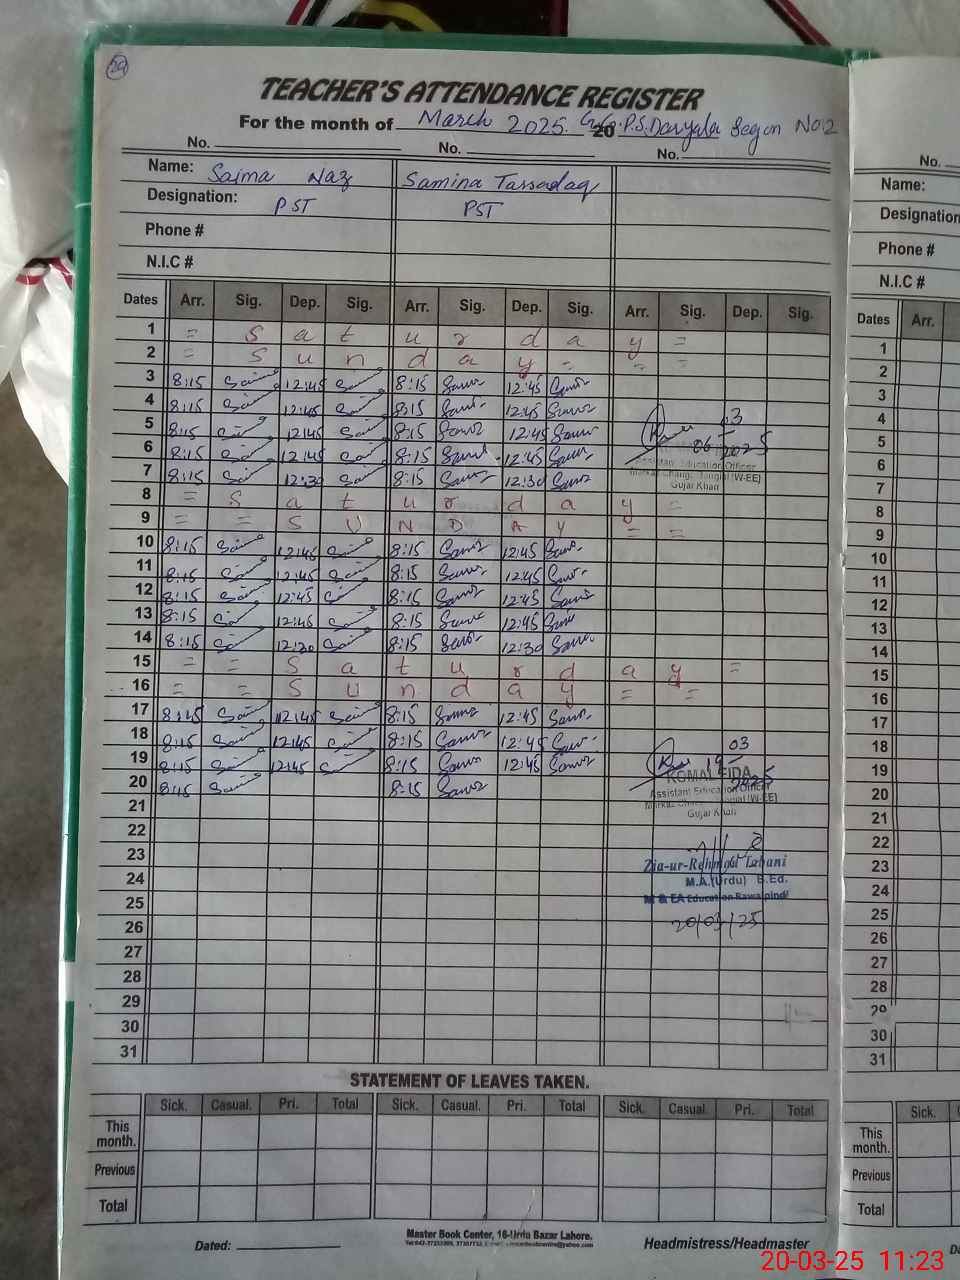 29
TEACHER'S ATTENDANCE REGISTER
For the month of March 2025. 20 G.G.P.S. Daryala Segon No.2
No. No. No.
Name: Saima Naz Samina Tassadaq
Designation: PST PST
Phone #
N.I.C #
Dates Arr. Sig. Dep. Sig. Arr. Sig. Dep. Sig. Arr. Sig. Dep. Sig.
1 = S a t u r d a y =
2 = S u n d a y = = =
3 8:15 12:45 8:15 12:45
4 8:15 12:45 8:15 12:45
5 8:15 12:45 8:15 12:45
6 8:15 12:45 8:15 12:45
7 8:15 12:30 8:15 12:30
8 = S a t u r d a y =
9 = = S U N D A Y = =
10 8:15 12:45 8:15 12:45
11 8:15 12:45 8:15 12:45
12 8:15 12:45 8:15 12:45
13 8:15 12:45 8:15 12:45
14 8:15 12:30 8:15 12:30
15 = = S a t u r d a y =
16 = = S U n d a y = =
17 8:15 12:45 8:15 12:45
18 8:15 12:45 8:15 12:45
19 8:15 12:45 8:15 12:45
20 8:15 8:15
21
22
23
24
25
26
27
28
29
30
31
06 03 2025
Assistant Education Officer
(W-EE)
Gujar Khan
19 03 2025
KOMAL FIDA
Assistant Education Officer
Markaz (W-EE)
Gujar Khan
Zia-ur-Rehman
M.A.(Urdu) B.Ed.
M & EA Education Rawalpindi
20/03/25
STATEMENT OF LEAVES TAKEN.
Sick. Casual. Pri. Total Sick. Casual. Pri. Total Sick. Casual. Pri. Total
This month.
Previous
Total
Master Book Center, 16-Urdu Bazar Lahore.
Dated: Headmistress/Headmaster
No.
Name:
Designation
Phone #
N.I.C #
Dates Arr.
1
2
3
4
5
6
7
8
9
10
11
12
13
14
15
16
17
18
19
20
21
22
23
24
25
26
27
28
29
30
31
Sick.
This month.
Previous
Total
20-03-25 11:23